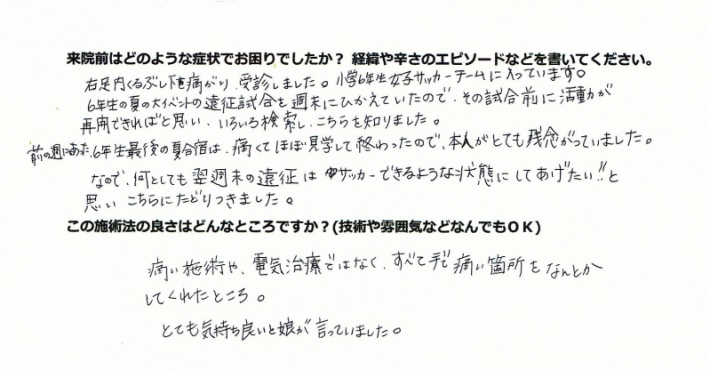 来院前はどのような症状でお困りでしたか? 経緯や辛さのエピソードなどを書いてください。
右足内くるぶし下を痛がり、受診しました。小学6年生女子サッカーチームに入っています。
6年生の夏の大イベントの遠征試合を週末にひかえていたので、その試合前に活動が
再開できればと思い、いろいろ検索し、こちらを知りました。
前の週にあった、6年生最後の夏合宿は、痛くてほぼ見学して終わったので、本人がとても残念がっていました。
なので、何としても翌週末の遠征はサッカーできるような状態にしてあげたい!!と
思いこちらにたどりつきました。
この施術法の良さはどんなところですか?(技術や雰囲気などなんでもOK)
痛い施術や、電気治療ではなく、すべて手で痛い箇所をなんとか
してくれたところ。
とても気持ち良いと娘が言っていました。